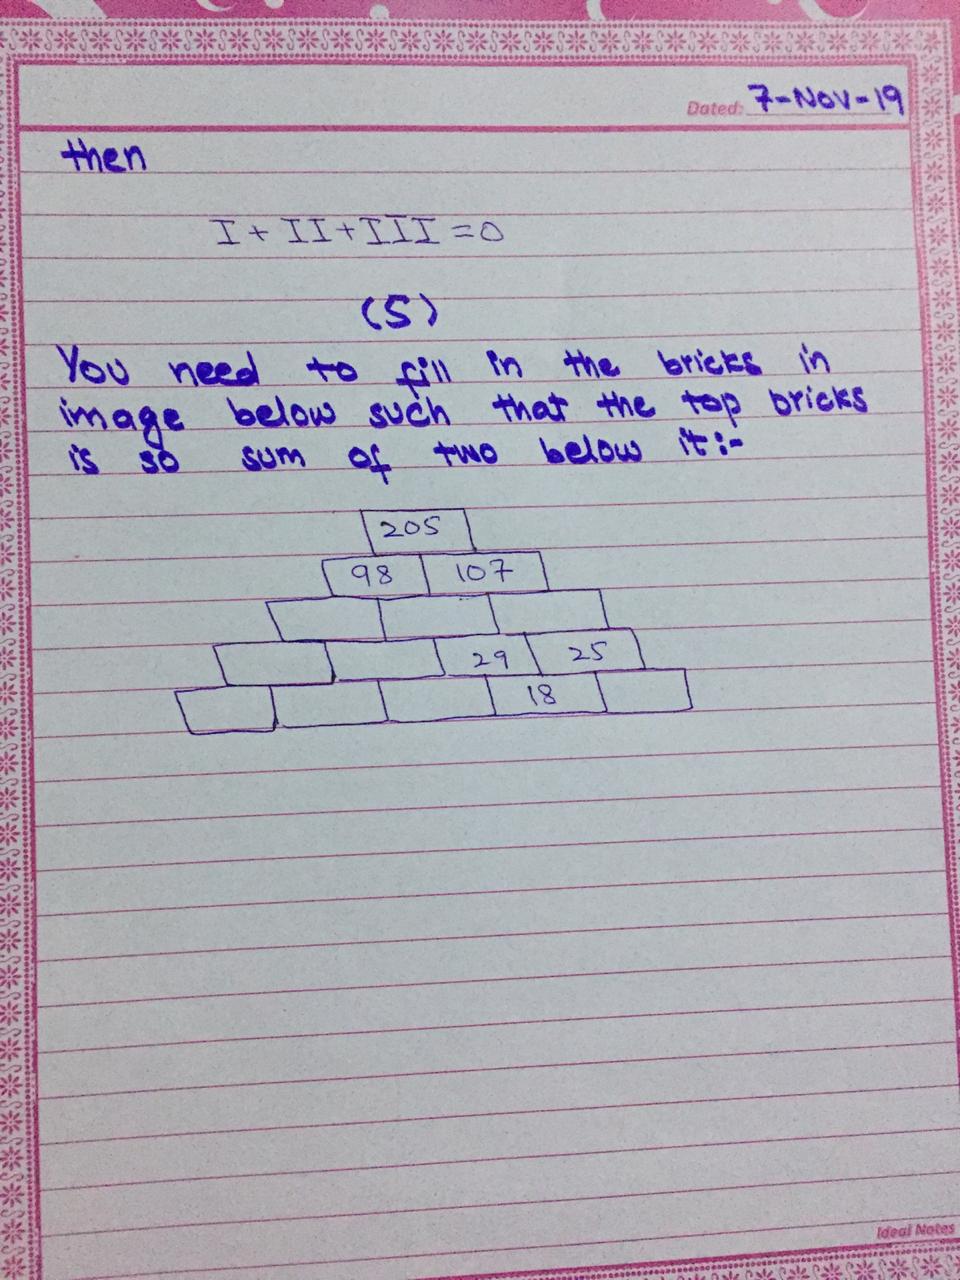 Dated: 7-Nov-19
then
I + II + III = 0
(5)
You need to fill in the bricks in
image below such that the top bricks
is so sum of two below it:-
205
98 107
29 25
18
Ideal Notes